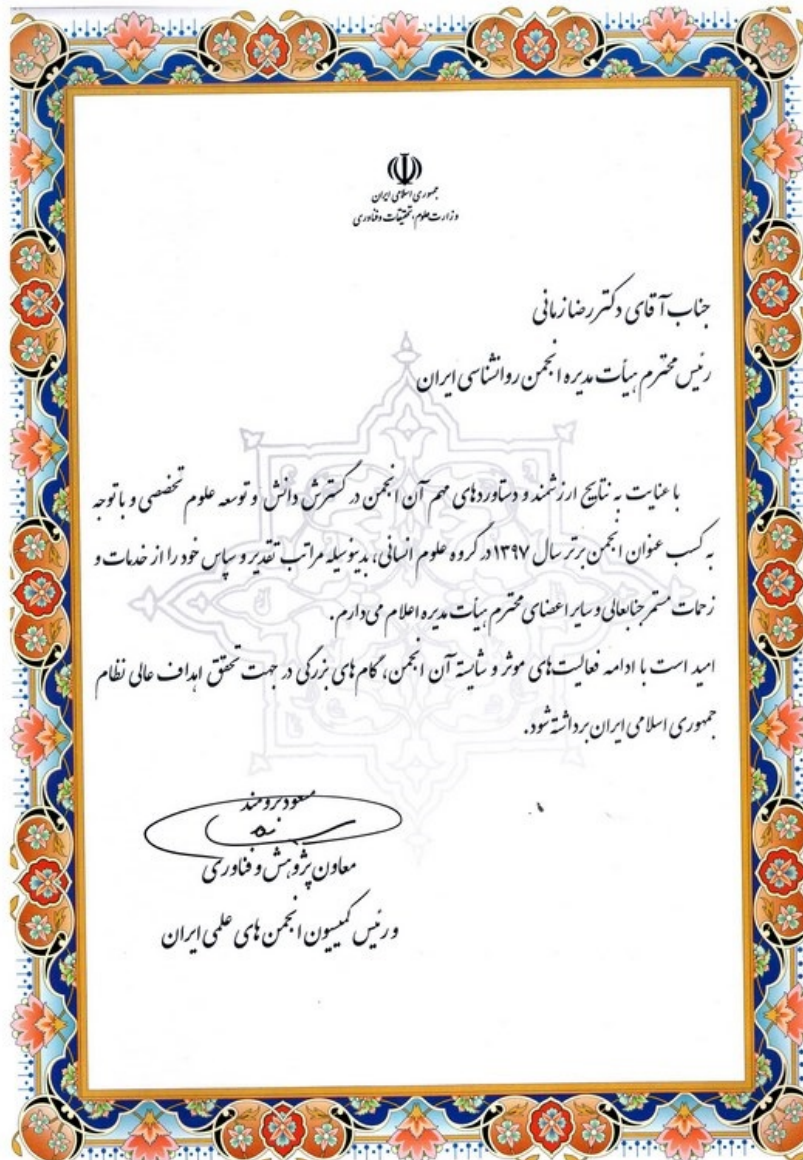 جمهوری اسلامی ایران
وزارت علوم، تحقیقات و فناوری
جناب آقای دکتر رضا زمانی
رئیس محترم هیأت مدیره انجمن روانشناسی ایران
با عنایت به نتایج ارزشمند و دستاوردهای مهم آن انجمن در گسترش دانش و توسعه علوم تخصصی و با توجه
به کسب عنوان انجمن برتر سال ۱۳۹۷ در گروه علوم انسانی، بدینوسیله مراتب تقدیر و سپاس خود را از خدمات و
زحمات مستمر جنابعالی و سایر اعضای محترم هیأت مدیره اعلام می‌دارم.
امید است با ادامه فعالیت‌های موثر و شایسته آن انجمن، گام‌های بزرگی در جهت تحقق اهداف عالی نظام
جمهوری اسلامی ایران برداشته شود.
مسعود برومند
معاون پژوهش و فناوری
و رئیس کمیسیون انجمن‌های علمی ایران